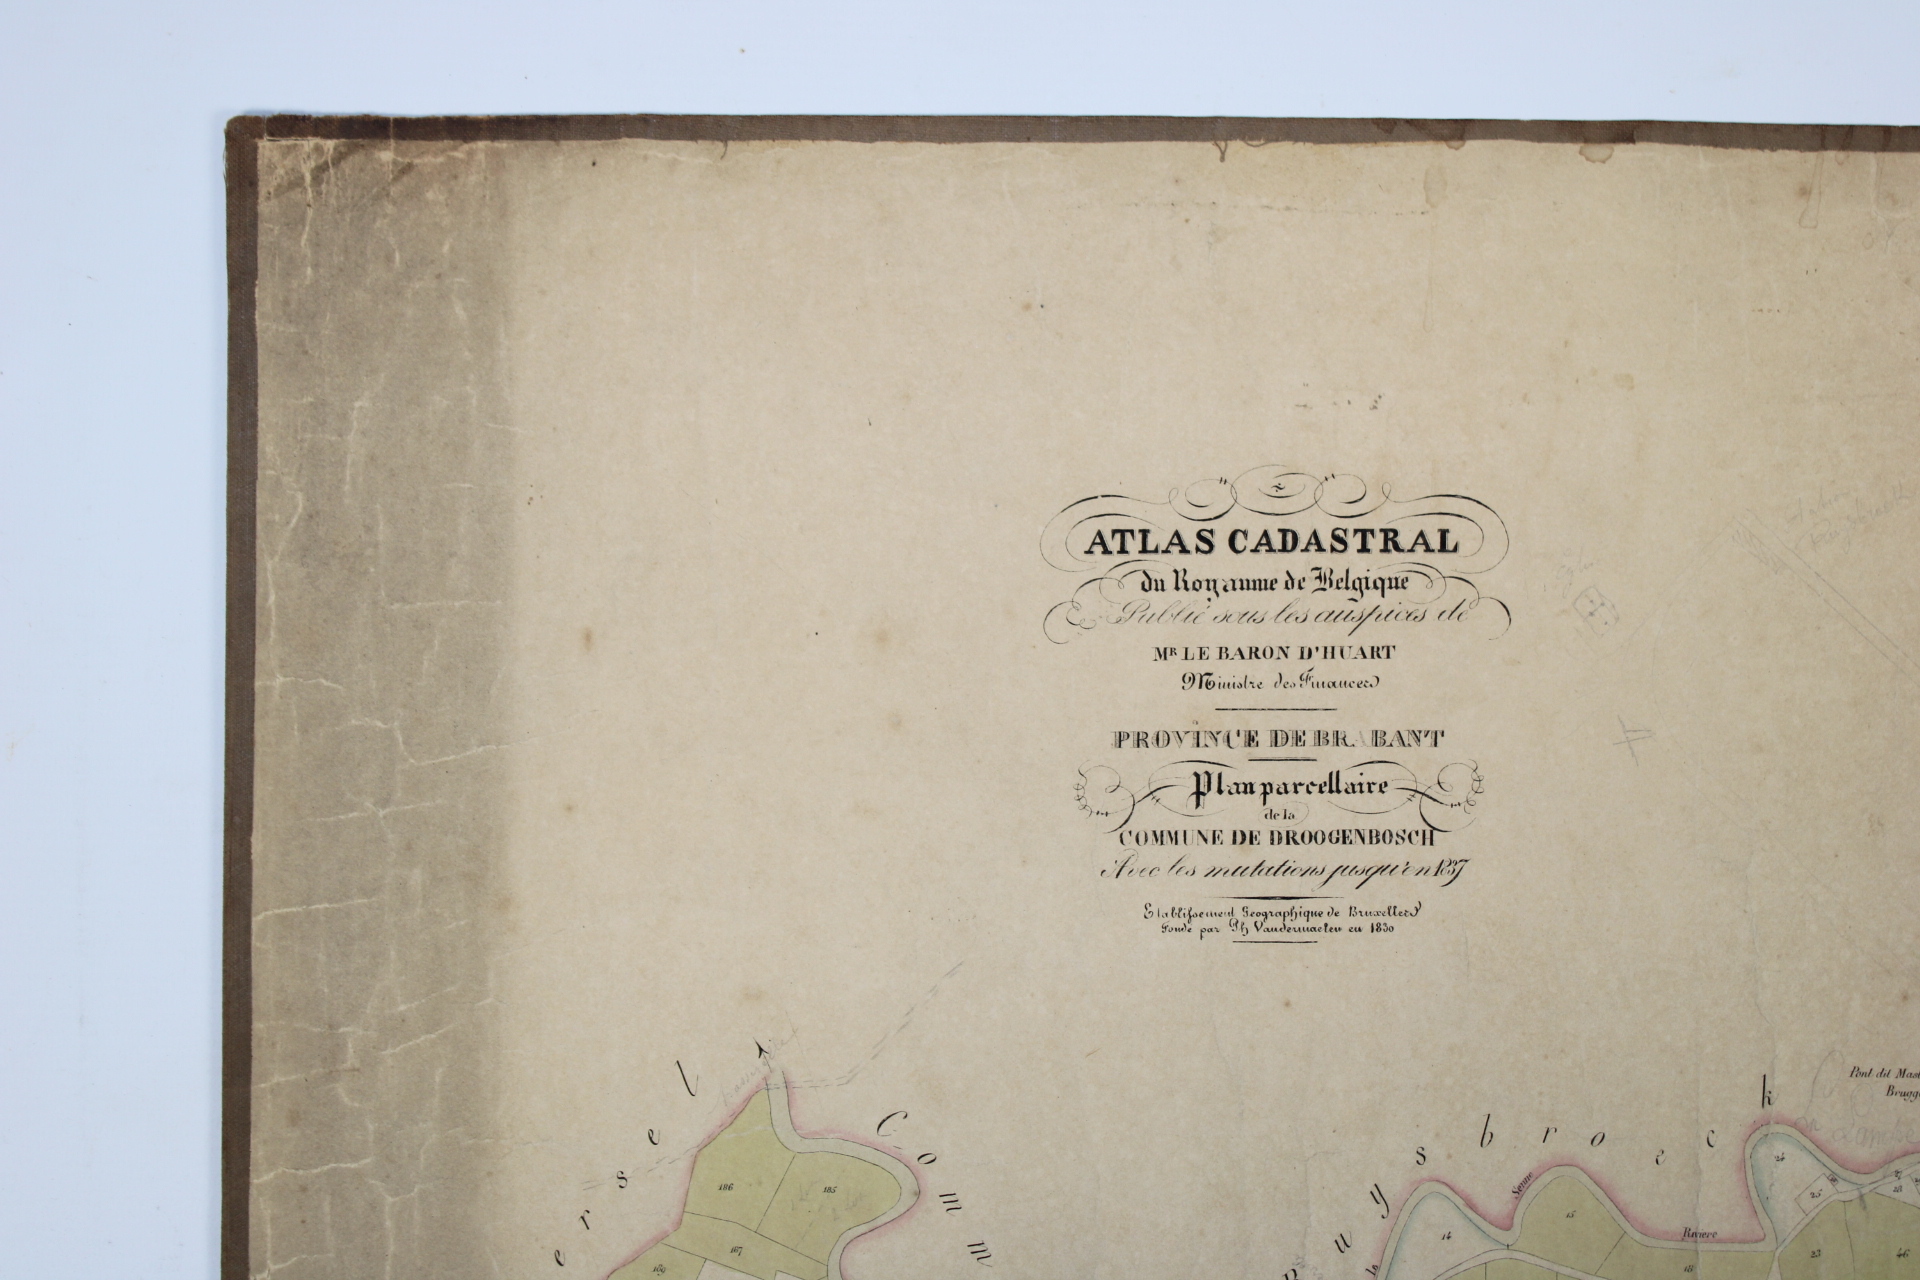 ATLAS CADASTRAL
du Royaume de Belgique
Publié sous les auspices de
MR LE BARON D'HUART
Ministre des Finances
PROVINCE DE BRABANT
Plan parcellaire
de la
COMMUNE DE DROOGENBOSCH
Avec les mutations jusqu'en 1837
Etablissement Geographique de Bruxelles
Fondé par Ph Vandermaelen en 1830
Pont dit Mast
Brugge
ersel
Comm
Ruysbroeck
Senne
Riviere
186
185
167
169
14
15
18
24
25
27
28
23
46